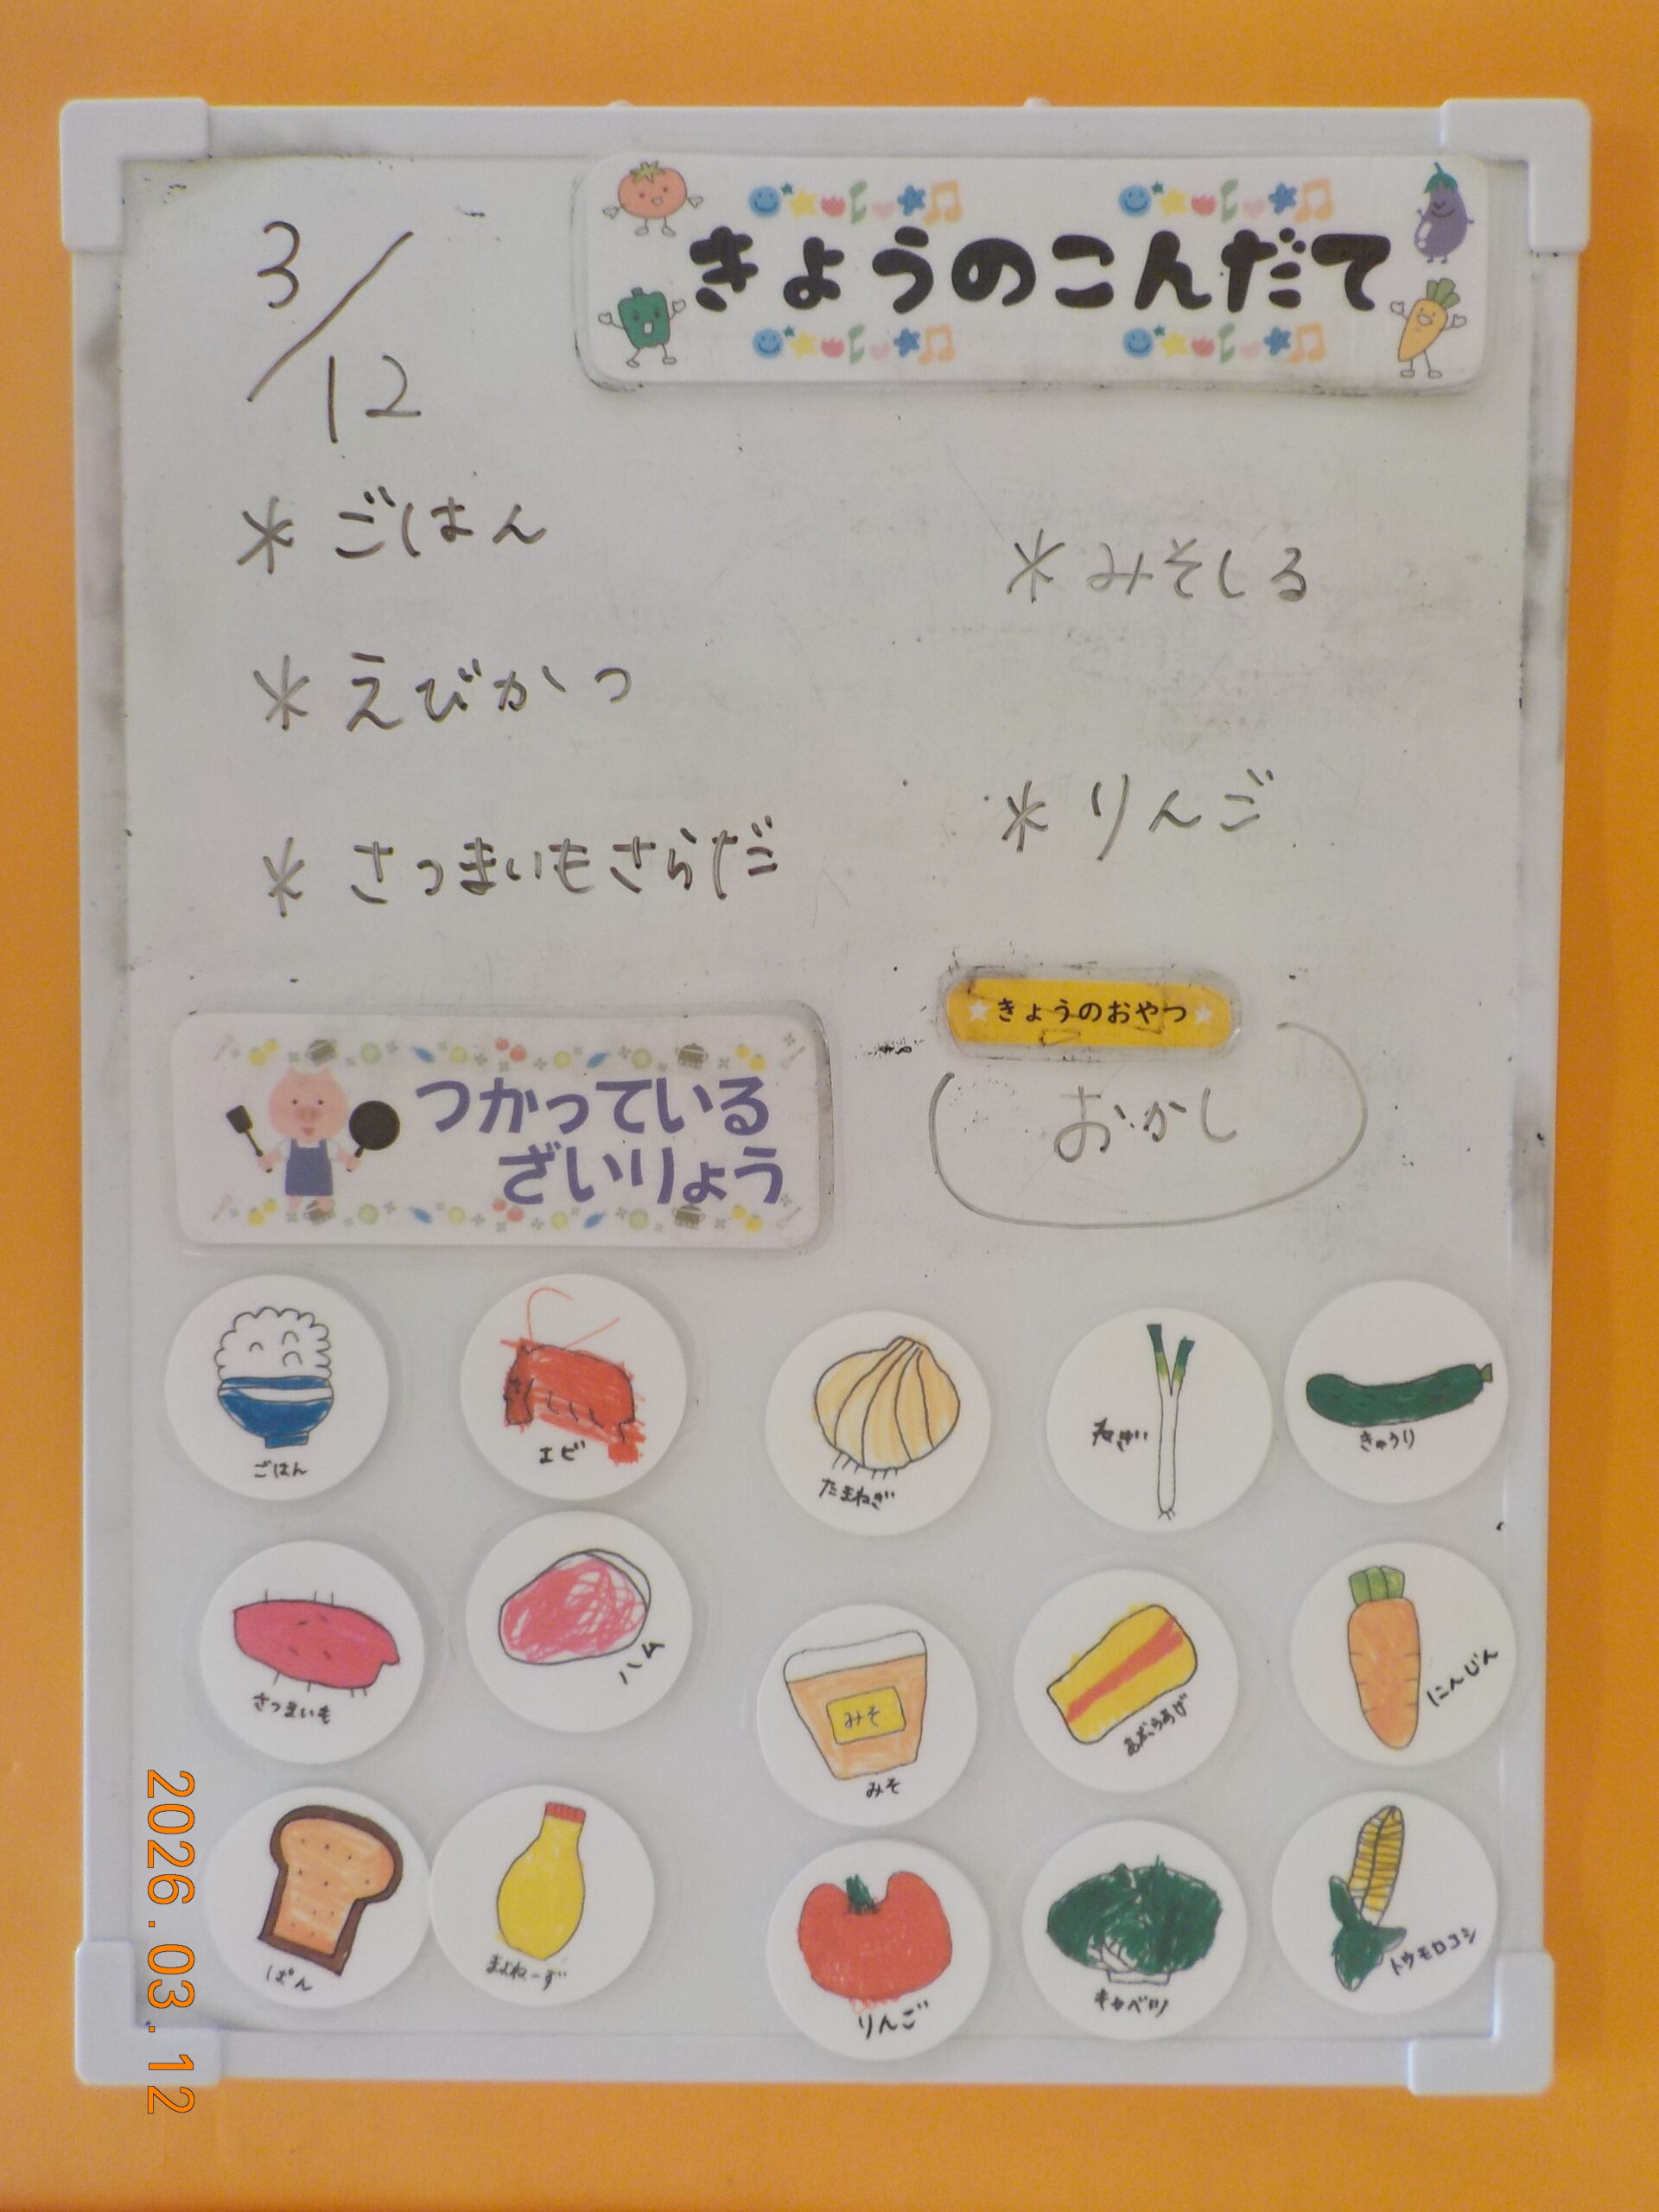 3/12
きょうのこんだて
* ごはん
* みそしる
* えびかつ
* りんご
* さつまいもさらだ
きょうのおやつ
おかし
つかっている
ざいりょう
ごはん
エビ
たまねぎ
ねぎ
きゅうり
さつまいも
ハム
みそ
みそ
あぶらあげ
にんじん
ぱん
まよねーず
りんご
キャベツ
トウモロコシ
2026.03.12